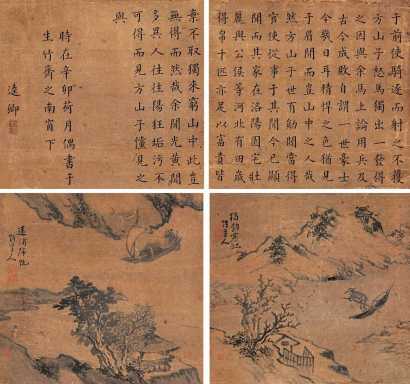 于前使騎逐而射之不獲
方山子怒馬獨出一發得
之因與余馬上論用兵及
古今成敗自謂一世豪士
今幾日耳精悍之色猶見
于眉間而豈山中之人哉
然方山子世有勛閥當得
官使從事于其間今已顯
聞而其家在洛陽園宅壯
麗與公侯等河北有田歲
得帛千匹亦足以富貴皆
棄不取獨來窮山中此豈
無得而然哉余聞光黃間
多異人往往陽狂垢污不
可得而見方山子儻見之
與
時在辛卯荷月偶書于
生竹齋之南窗下
遠卿
獨釣寒江
遠浦歸帆